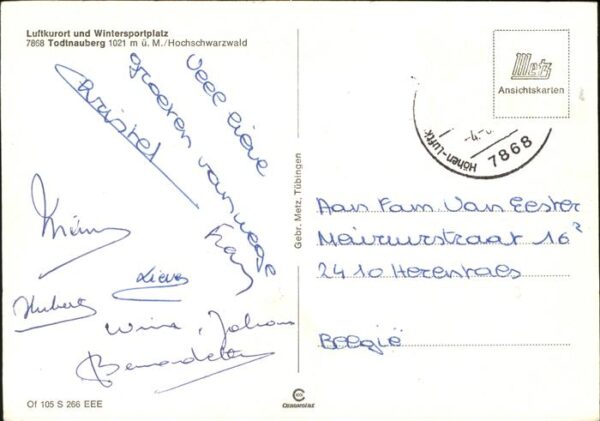 Luftkurort und Wintersportplatz
7868 Todtnauberg 1021 m ü. M./Hochschwarzwald
Veel lieve
groeten vanwege
Christel
Frans
Lieve
Hubert
Wine, Johan
Bernadette
Of 105 S 266 EEE
Gebr. Metz, Tübingen
Metz
Ansichtskarten
Höhen-Luftk
7868
Aan Fam. Van Eester
Neirurstraat 16²
2410 Herentals
België